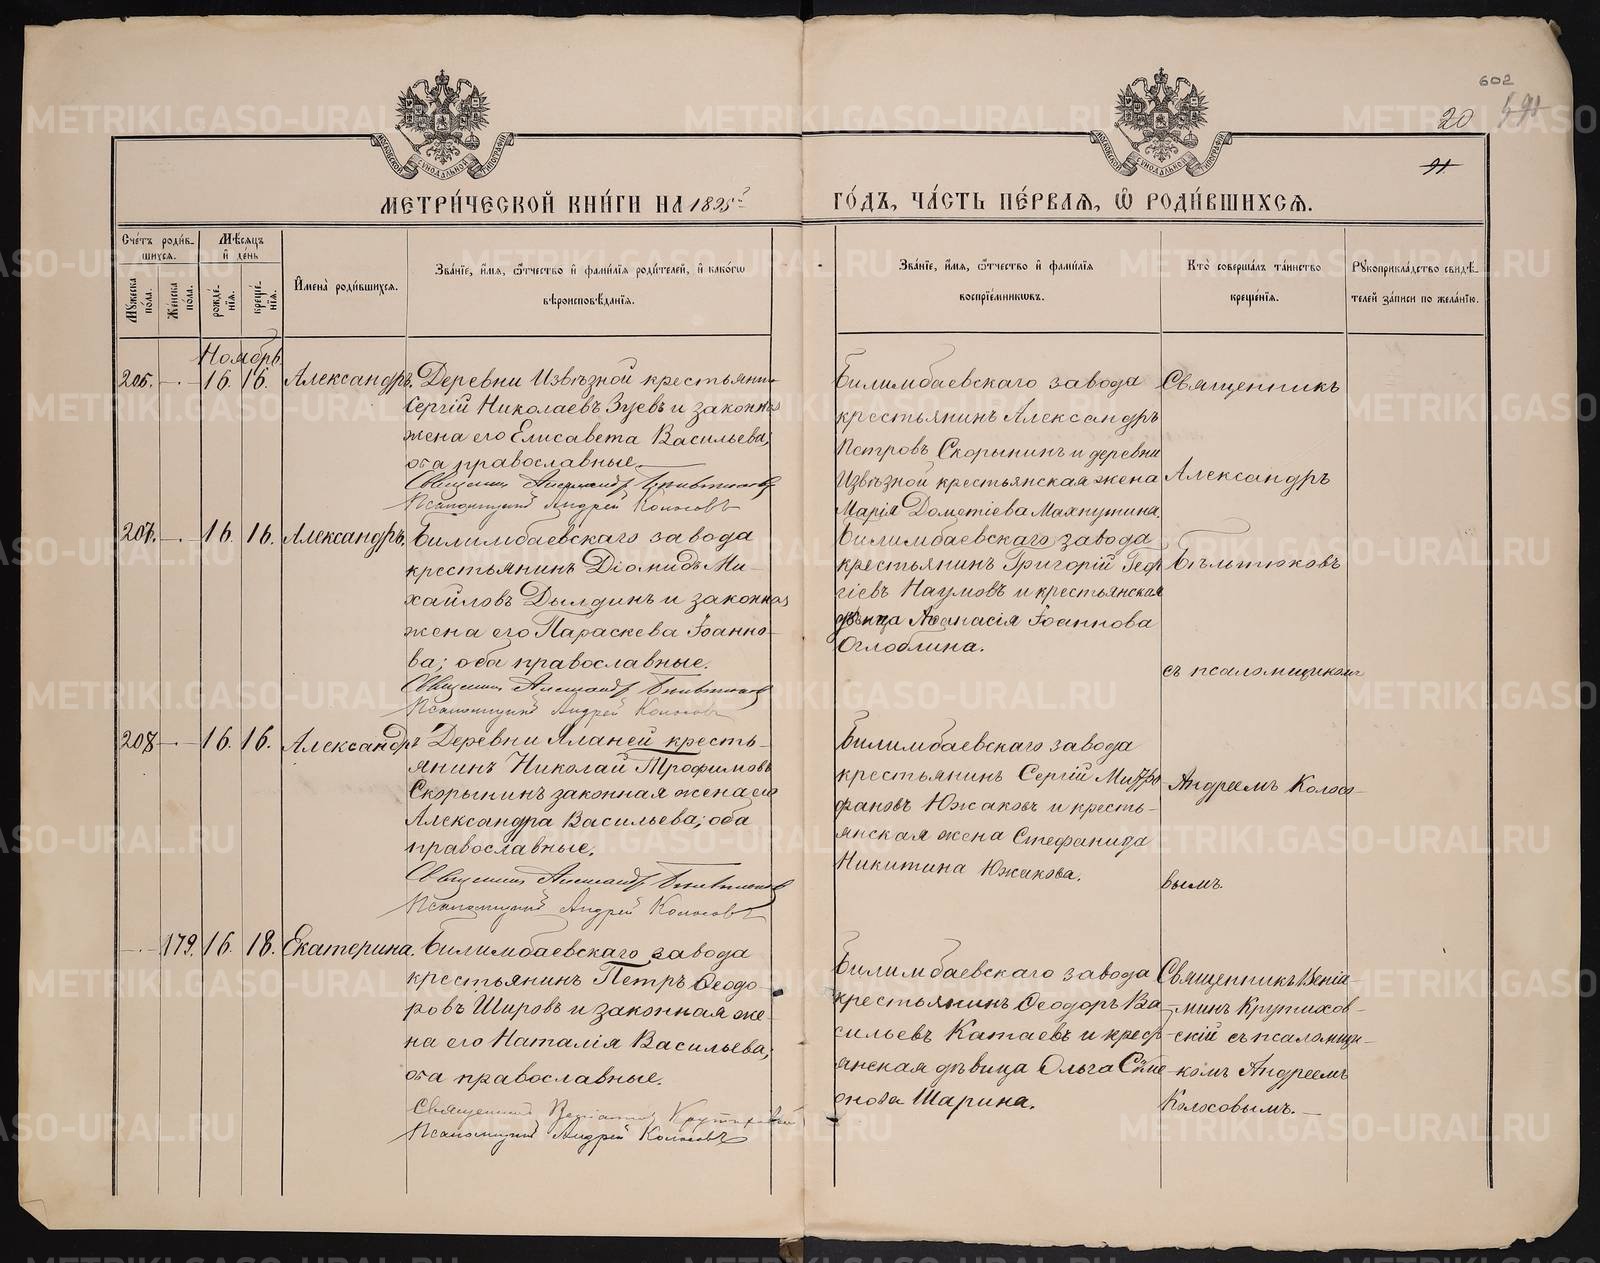 602
20
91
МЕТРИ́ЧЕСКОЙ КНИ́ГИ НА 1895
ГО́ДЪ, ЧА́СТЬ ПЕ́РВАЯ, Ѽ РОДИ́ВШИХСѦ.
Сче́тъ роди́в-
шихсѧ.
Мꙋжеска по́ла.
Же́нска по́ла.
Мѣ́сѧцъ
и҆ день
рожде́-
нїѧ.
креще́-
нїѧ.
И҆мена̀ роди́вшихсѧ.
Зва́нїе, и҆́мѧ, ѻ҆́тчество и҆ фами́лїѧ роди́телей, и҆ како́гѡ
вѣроисповѣ́данїѧ.
Зва́нїе, и҆́мѧ, ѻ҆́тчество и҆ фами́лїѧ
воспрїе́мникѡвъ.
Кто̀ соверша́лъ та́инство
креще́нїѧ.
Рꙋкоприкла́дство свидѣ́-
телей за́писи по жела́нїю.
Ноябрь.
206. — 16. 16. Александръ. Деревни Извѣзной крестьянин
Сергій Николаевъ Зуевъ и законная
жена его Елисавета Васильева;
оба православные.
Священник Александр Бѣльтюковъ
Псаломщикъ Андрей Колосовъ
Билимбаевскаго завода
крестьянинъ Александръ
Петровъ Скорынинъ и деревни
Извѣзной крестьянская жена
Марія Дометіева Махнутина.
Священникъ
Александръ
207. — 16. 16. Александръ. Билимбаевскаго завода
крестьянинъ Діомидъ Ми-
хайловъ Дылдинъ и законная
жена его Параскева Іоанно-
ва; оба православные.
Священник Александр Бѣльтюковъ
Псаломщикъ Андрей Колосовъ
Билимбаевскаго завода
крестьянинъ Григорій Геор
гіевъ Наумовъ и крестьянская
дѣвица Аѳанасія Іоаннова
Оглоблина.
Бѣльтюковъ
съ псаломщикомъ
208 — 16. 16. Александръ Деревни Яланей кресть-
янинъ Николай Трофимовъ
Скорынинъ законная жена его
Александра Васильева; оба
православные.
Священник Александр Бѣльтюковъ
Псаломщикъ Андрей Колосовъ
Билимбаевскаго завода
крестьянинъ Сергій Митро
фановъ Южаковъ и кресть-
янская жена Стефанида
Никитина Южакова.
Андреемъ Колосо-
вымъ.
— 179. 16. 18. Екатерина. Билимбаевскаго завода
крестьянинъ Петръ Ѳеодо-
ровъ Шировъ и законная же-
на его Наталія Васильева;
оба православные.
Священникъ Веніаминъ Крутиховскій
Псаломщикъ Андрей Колосовъ
Билимбаевскаго завода
крестьянинъ Ѳеодоръ Ва
сильевъ Катаевъ и крест
янская дѣвица Ольга Симе
онова Шарина.
Священникъ Веніа-
минъ Крутихов-
скій съ псаломщи-
комъ Андреемъ
Колосовымъ.—